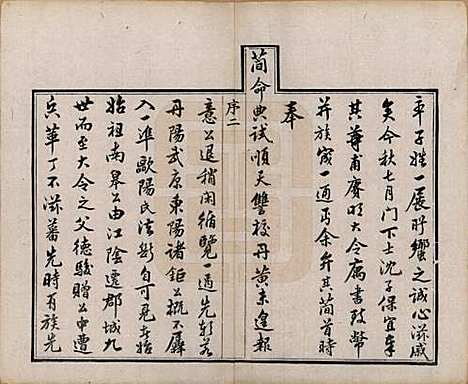 年子姓一展盱蠁之誠心滋戚
矣今秋七月門下士沈子保宜奉
其尊甫賡明大令腐書致幣
并族宬一通丐余弁其簡首時
奉
簡命典試順天讐校丹黃未遑報
序二
意公退稍閒循覽一過先新若
丹陽武原東陽諸鉅公概不羼
入一準歐陽氏法斷自可見在始
始祖南皋公由江陰遷郡城九
世而至大令之父德駿贈公中遭
兵革了不滋蕃先時有族先